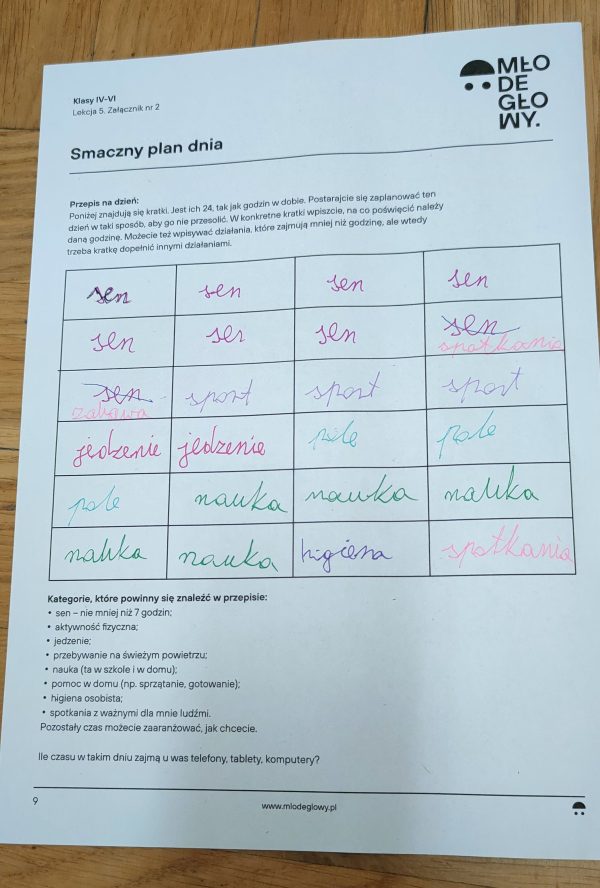 Klasy IV-VI
Lekcja 5. Załącznik nr 2
MŁO
DE
GŁO
WY.
Smaczny plan dnia
Przepis na dzień:
Poniżej znajdują się kratki. Jest ich 24, tak jak godzin w dobie. Postarajcie się zaplanować ten
dzień w taki sposób, aby go nie przesolić. W konkretne kratki wpiszcie, na co poświęcić należy
daną godzinę. Możecie też wpisywać działania, które zajmują mniej niż godzinę, ale wtedy
trzeba kratkę dopełnić innymi działaniami.
sen sen sen sen
sen sen sen sen
spotkania
sen sport sport sport
zabawa
jedzenie jedzenie pole pole
pole nauka nauka nauka
nauka nauka higiena spotkania
Kategorie, które powinny się znaleźć w przepisie:
• sen – nie mniej niż 7 godzin;
• aktywność fizyczna;
• jedzenie;
• przebywanie na świeżym powietrzu;
• nauka (ta w szkole i w domu);
• pomoc w domu (np. sprzątanie, gotowanie);
• higiena osobista;
• spotkania z ważnymi dla mnie ludźmi.
Pozostały czas możecie zaaranżować, jak chcecie.
Ile czasu w takim dniu zajmą u was telefony, tablety, komputery?
9
www.mlodeglowy.pl